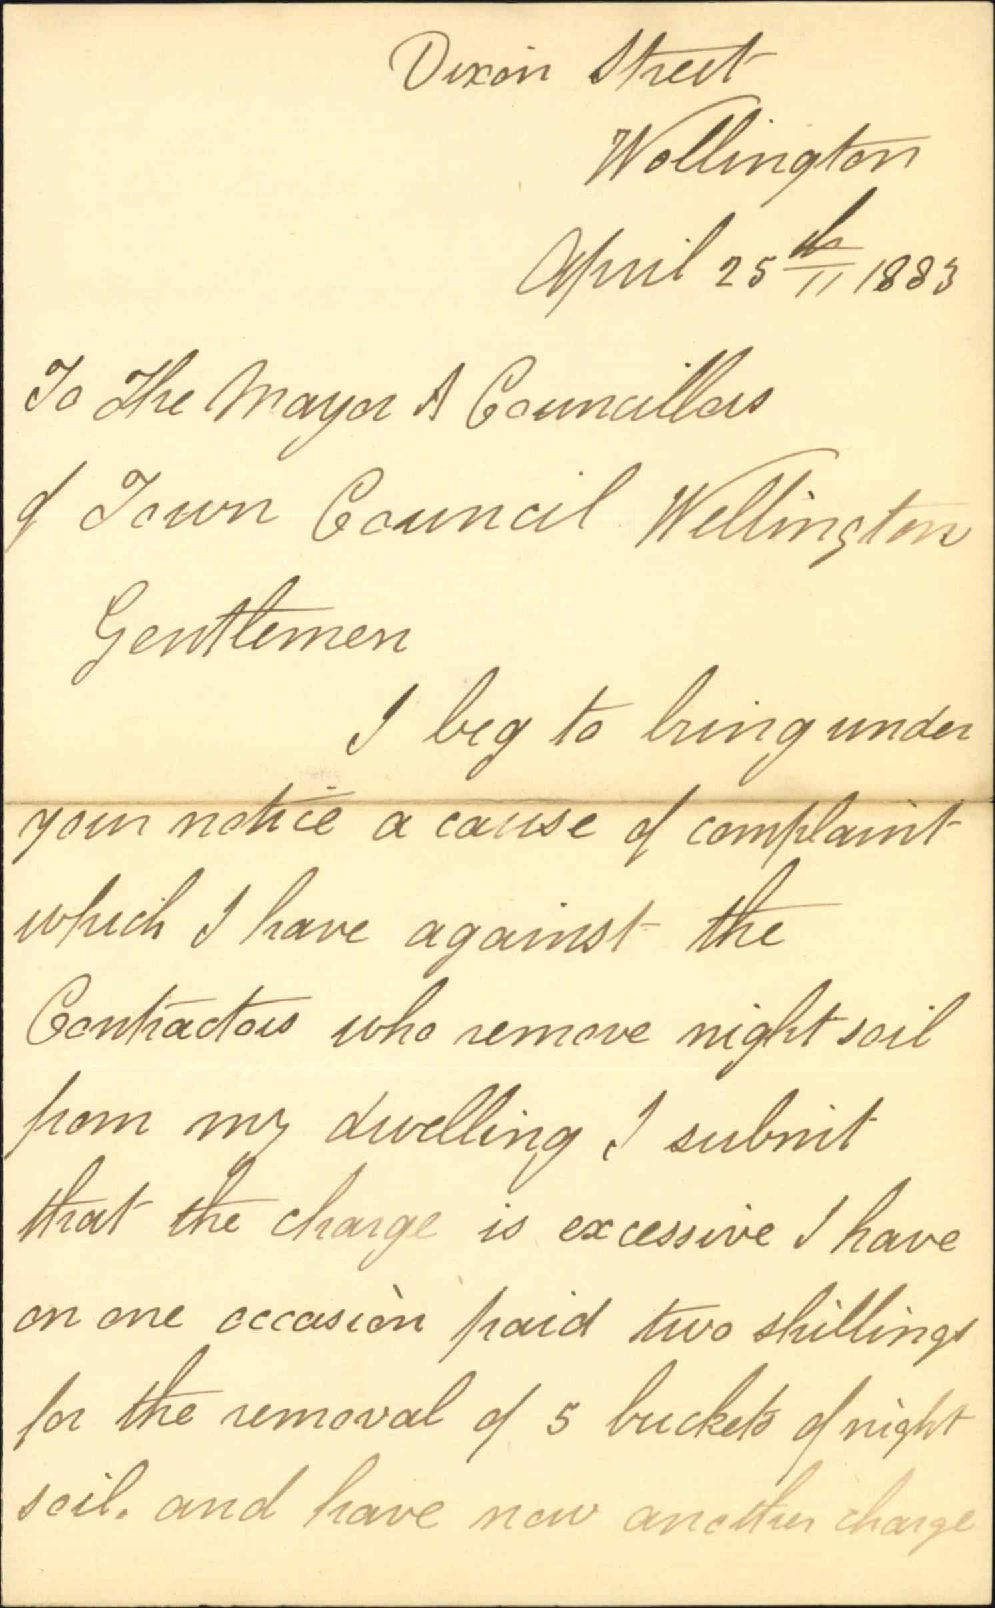 Dixon Street
Wellington
April 25th 1883
To The Mayor & Councillors
of Town Council Wellington
Gentlemen
I beg to bring under
your notice a cause of complaint
which I have against the
Contractors who remove night soil
from my dwelling I submit
that the charge is excessive I have
on one occasion paid two shillings
for the removal of 5 buckets of night
soil. and have now another charge